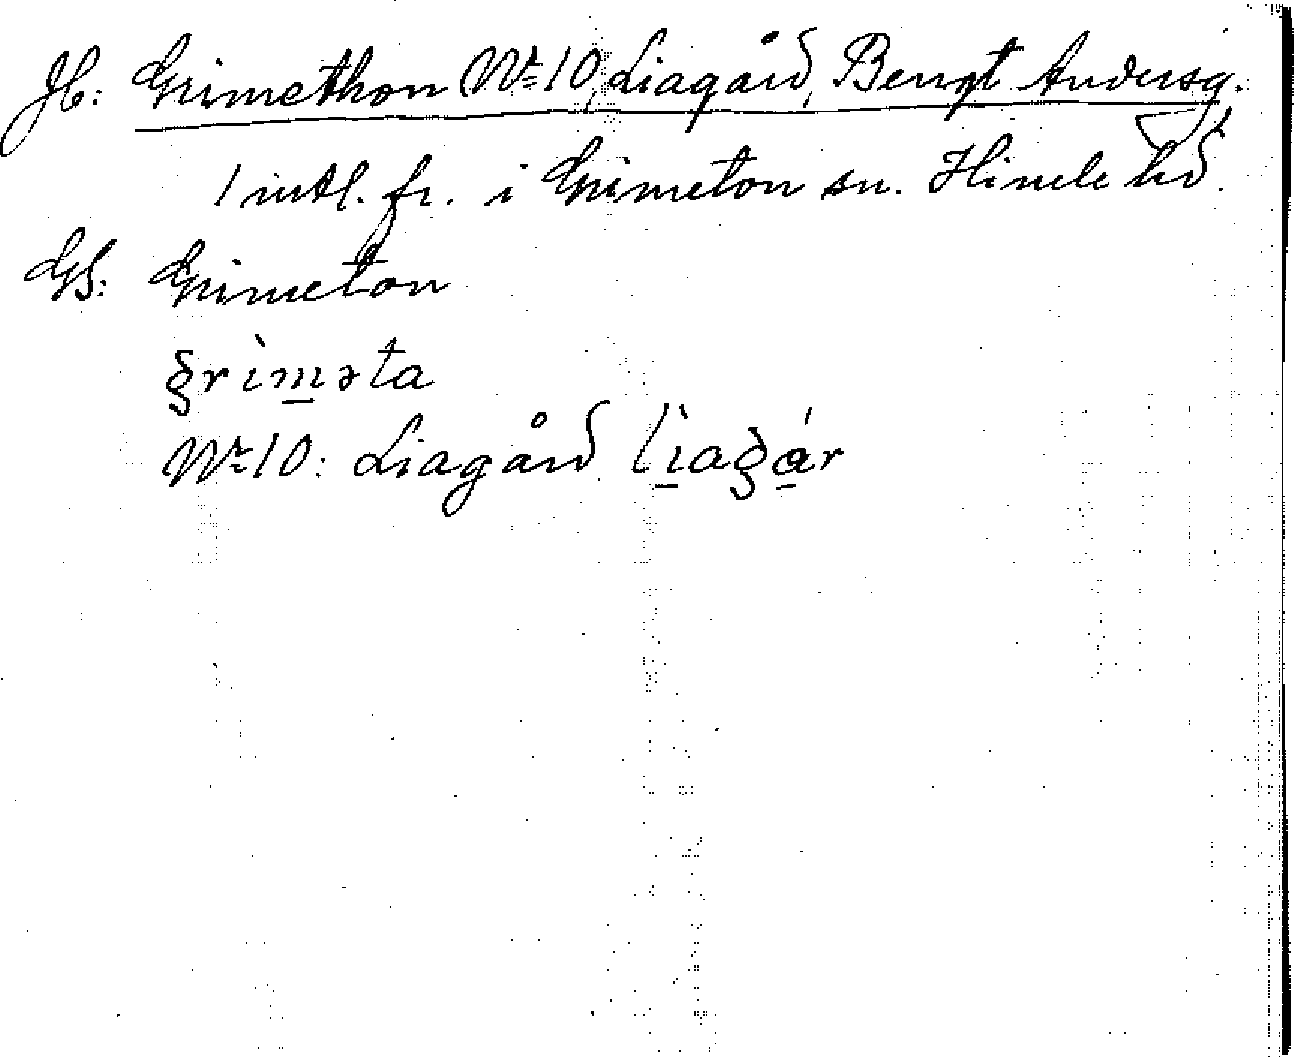 Jb: Grimethon (Nr 10, Liagård, Bengt Andersg.
1 mtl. fr. i Grimeton sn. Himle hd.
GS: Grimeton
grìm̲əta
Nr 10: Liagård lì̲agá̲r